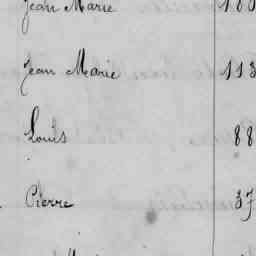 Jean Marie
Jean Marie 113
Louis 88
Pierre 37